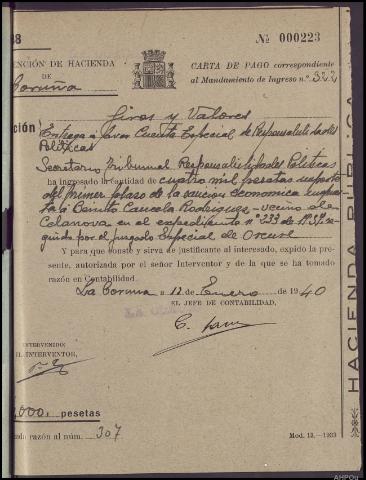 38
Nº 000223
ENCIÓN DE HACIENDA
DE
Coruña
CARTA DE PAGO correspondiente
al Mandamiento de Ingreso n.º 322
Giros y Valores
ción:
Entrega a favor Cuenta Especial de Responsabilidades
Políticas
Secretario Tribunal Responsabilidades Políticas
ha ingresado la cantidad de cuatro mil pesetas importe
del primer plazo de la sanción económica impues
ta a Benito Cancela Rodriguez - vecino de
Celanova en el expediente nº 333 de 1939 se
guido por el juzgado Especial de Orense
Y para que conste y sirva de justificante al interesado, expido la pre-
sente, autorizada por el señor Interventor y de la que se ha tomado
razón en Contabilidad.
La Coruña a 12 de Enero de 1940
EL JEFE DE CONTABILIDAD,
INTERVENIDO:
EL INTERVENTOR,
,000, pesetas
ada razón al núm. 307
Mod. 13.—1933
HACIENDA PUBLICA
AHPOu